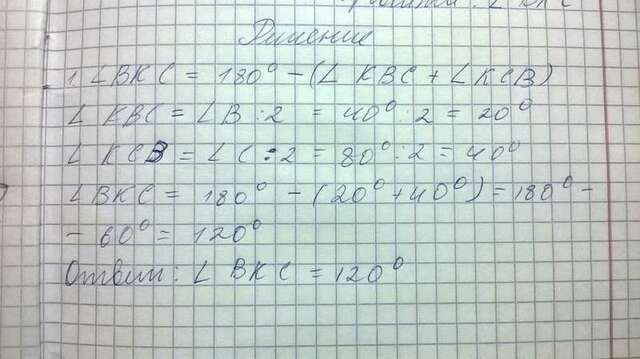 ∠ BKC
Решение
1. ∠BKC = 180° - (∠ KBC + ∠KCB)
∠ KBC = ∠B : 2 = 40° : 2 = 20°
∠ KCB = ∠C : 2 = 80° : 2 = 40°
∠BKC = 180° - (20° + 40°) = 180° -
- 60° = 120°
Ответ: ∠ BKC = 120°